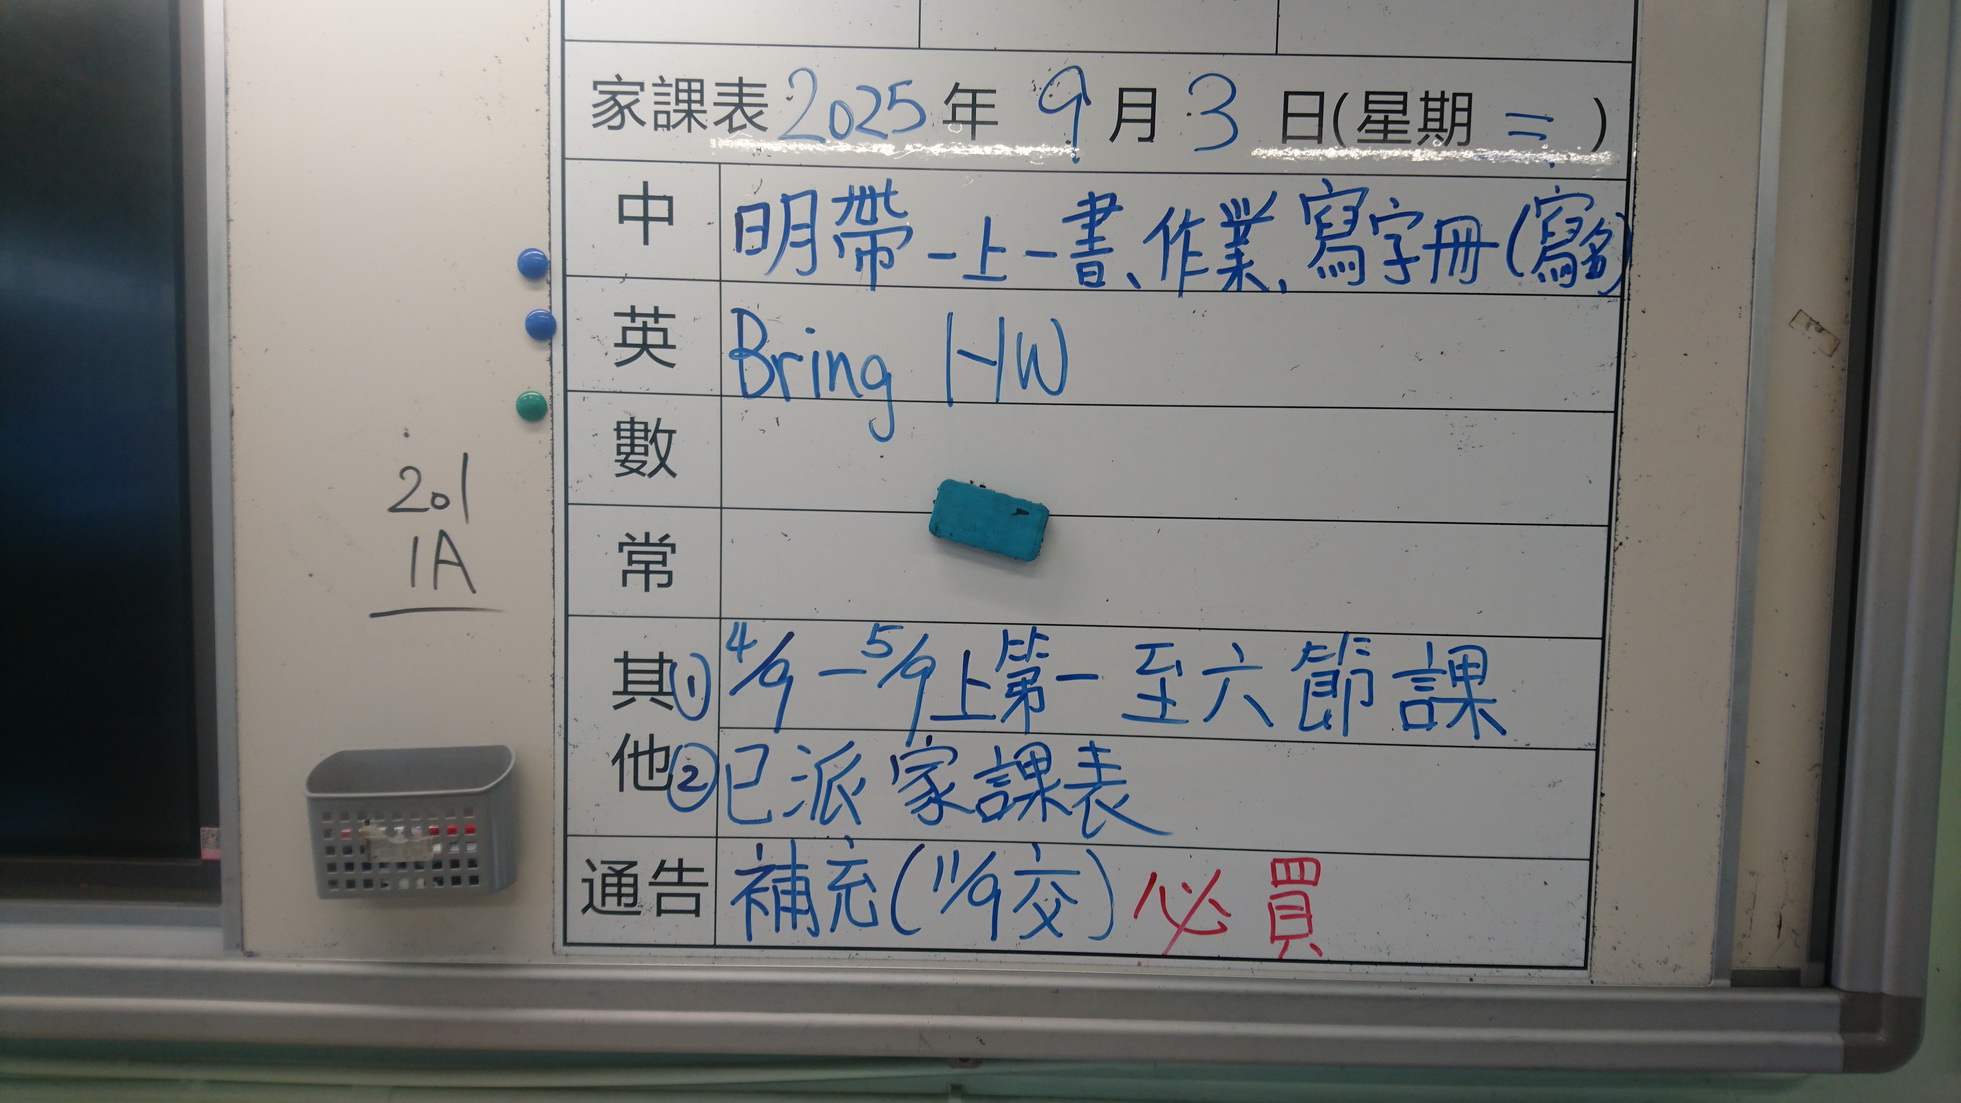 家課表 2025 年 9 月 3 日(星期 三 )
中 明帶一上一書、作業、寫字冊(寫名)
英 Bring HW
數
常
其他 ① 4/9 – 5/9 上第一至六節課
② 已派家課表
通告 補充(11/9交) 必買
201
1A